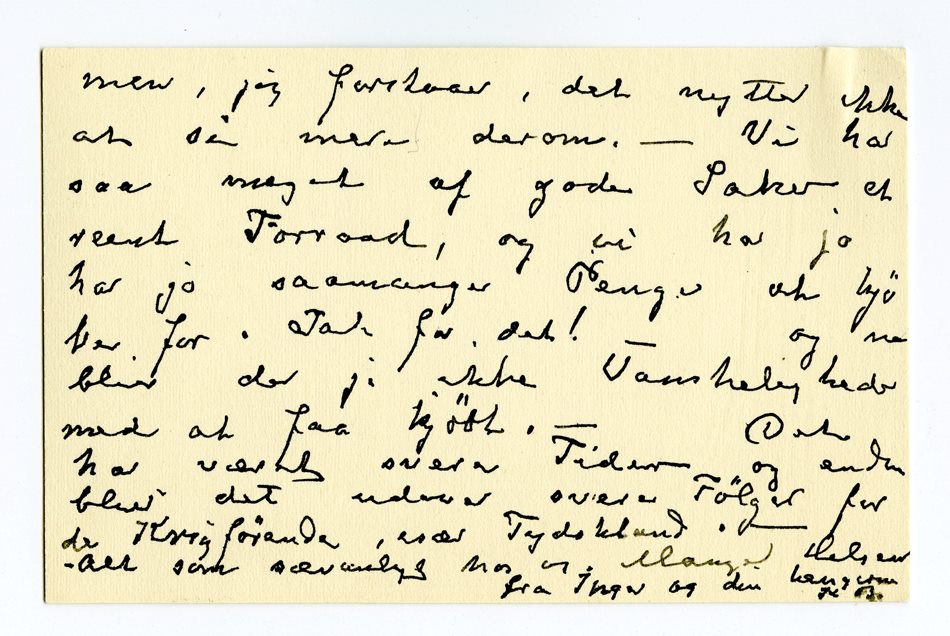 men, jeg forstaaer, det nytter ikke
at si mere derom. — Vi har
saa meget af gode Saker et
reent Forraad, og vi har jo
har jo saamange Penge at kjö
ber for. Tak for det! og nu
blir der jo ikke Vanskeligheder
med at faa kjöbt. — Det
har været svære Tider og endnu
blir det udover svære Fölger for
de Krigförende, især Tydskland. —
-Alt som sævanligt hos os. Mange Helsener
fra Inger og din hengivne